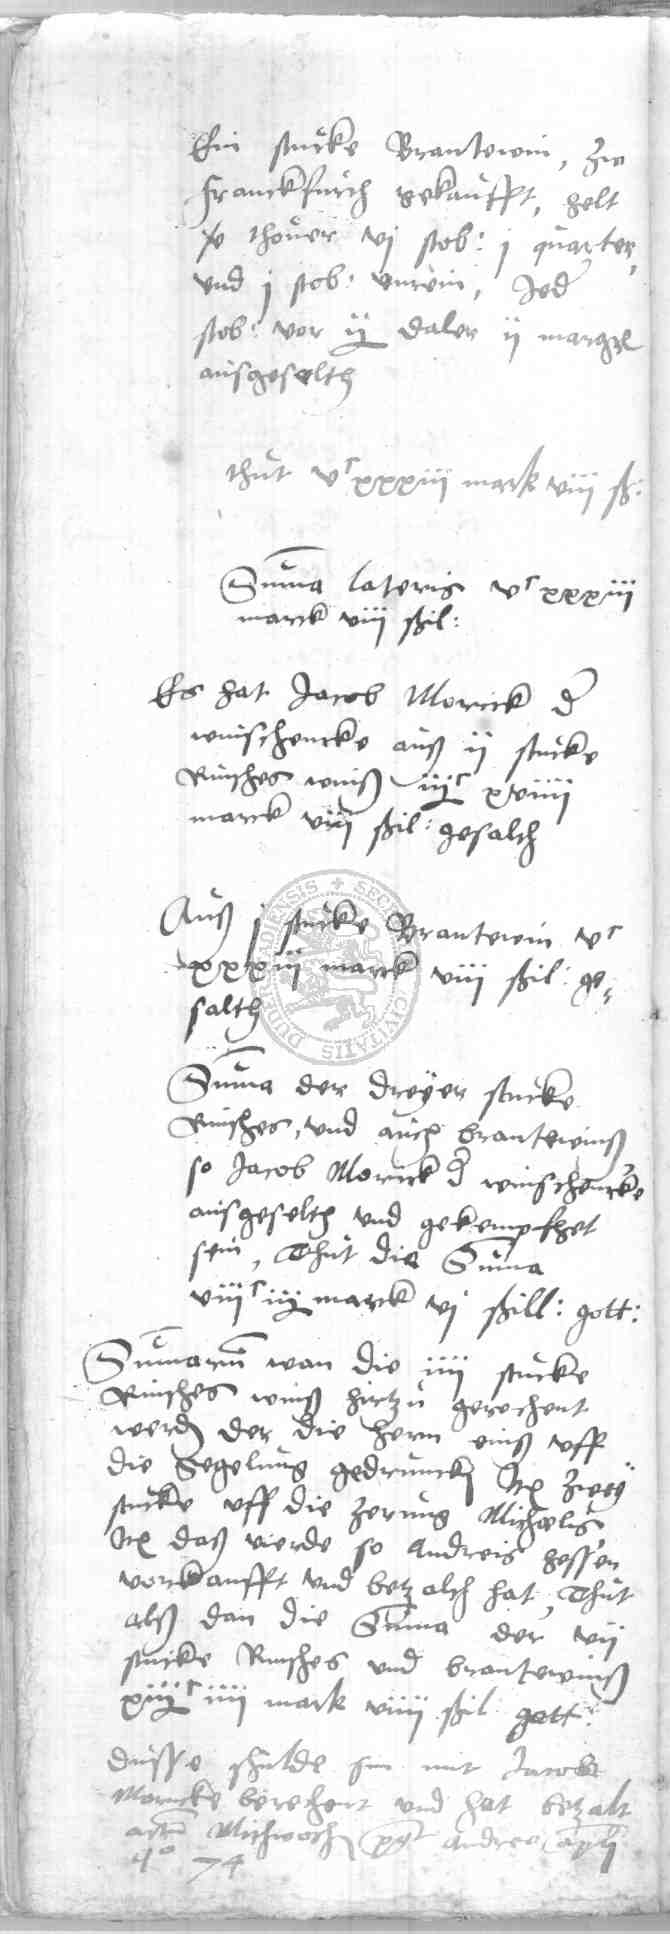 Ein stucke Brantewin, zu
Franckfurth gekaufft, helt
thover vj stob: j quarter,
vnd j stob: vnrein, Jed
stob: vor iij daler ij margk
ausgeselth
thut vᶜ xxxiii mark viii ß:
Suma lateris vᶜ xxxiii
marck viii ßil:
Es hat Jacob Morick d
winschencke auß ij stucke
Rinsches winß iijᶜ xviiii
marck viii ßil: gesalth
Auß j stucke Brantewin vᶜ
xxxiii marck viii ßil: ge,
salth
SECRE CIVITATIS DUDERSTADIENSIS
Suma der dreyer stucke
Rinsches, vnd auch brantewinß
so Jacob Morick d winschencke
ausgeselth vnd gekempfhet
sein, Thut die Suma
viiiᶜ iij marck vj ßill: gott:
Sumarum wan die iiii stucke
Rinsches winß hirtzu gerechent
werden der die hern einß vff
die Segelung gedruncken Itz zwey
stucke vff die zerung Michaelis
Itz daß vierde so Andreis Hessen
vorkaufft vnd betzalth hat, Thut
alß dan die Suma der vij
stucke Rinsches vnd brantewinß
xiiijᶜ iiii mark viiii ßil gott:
Dusse schulde sin mit Jacob
Moricke berechent vnd hat betzalt
Mithwoch Andree apli
74